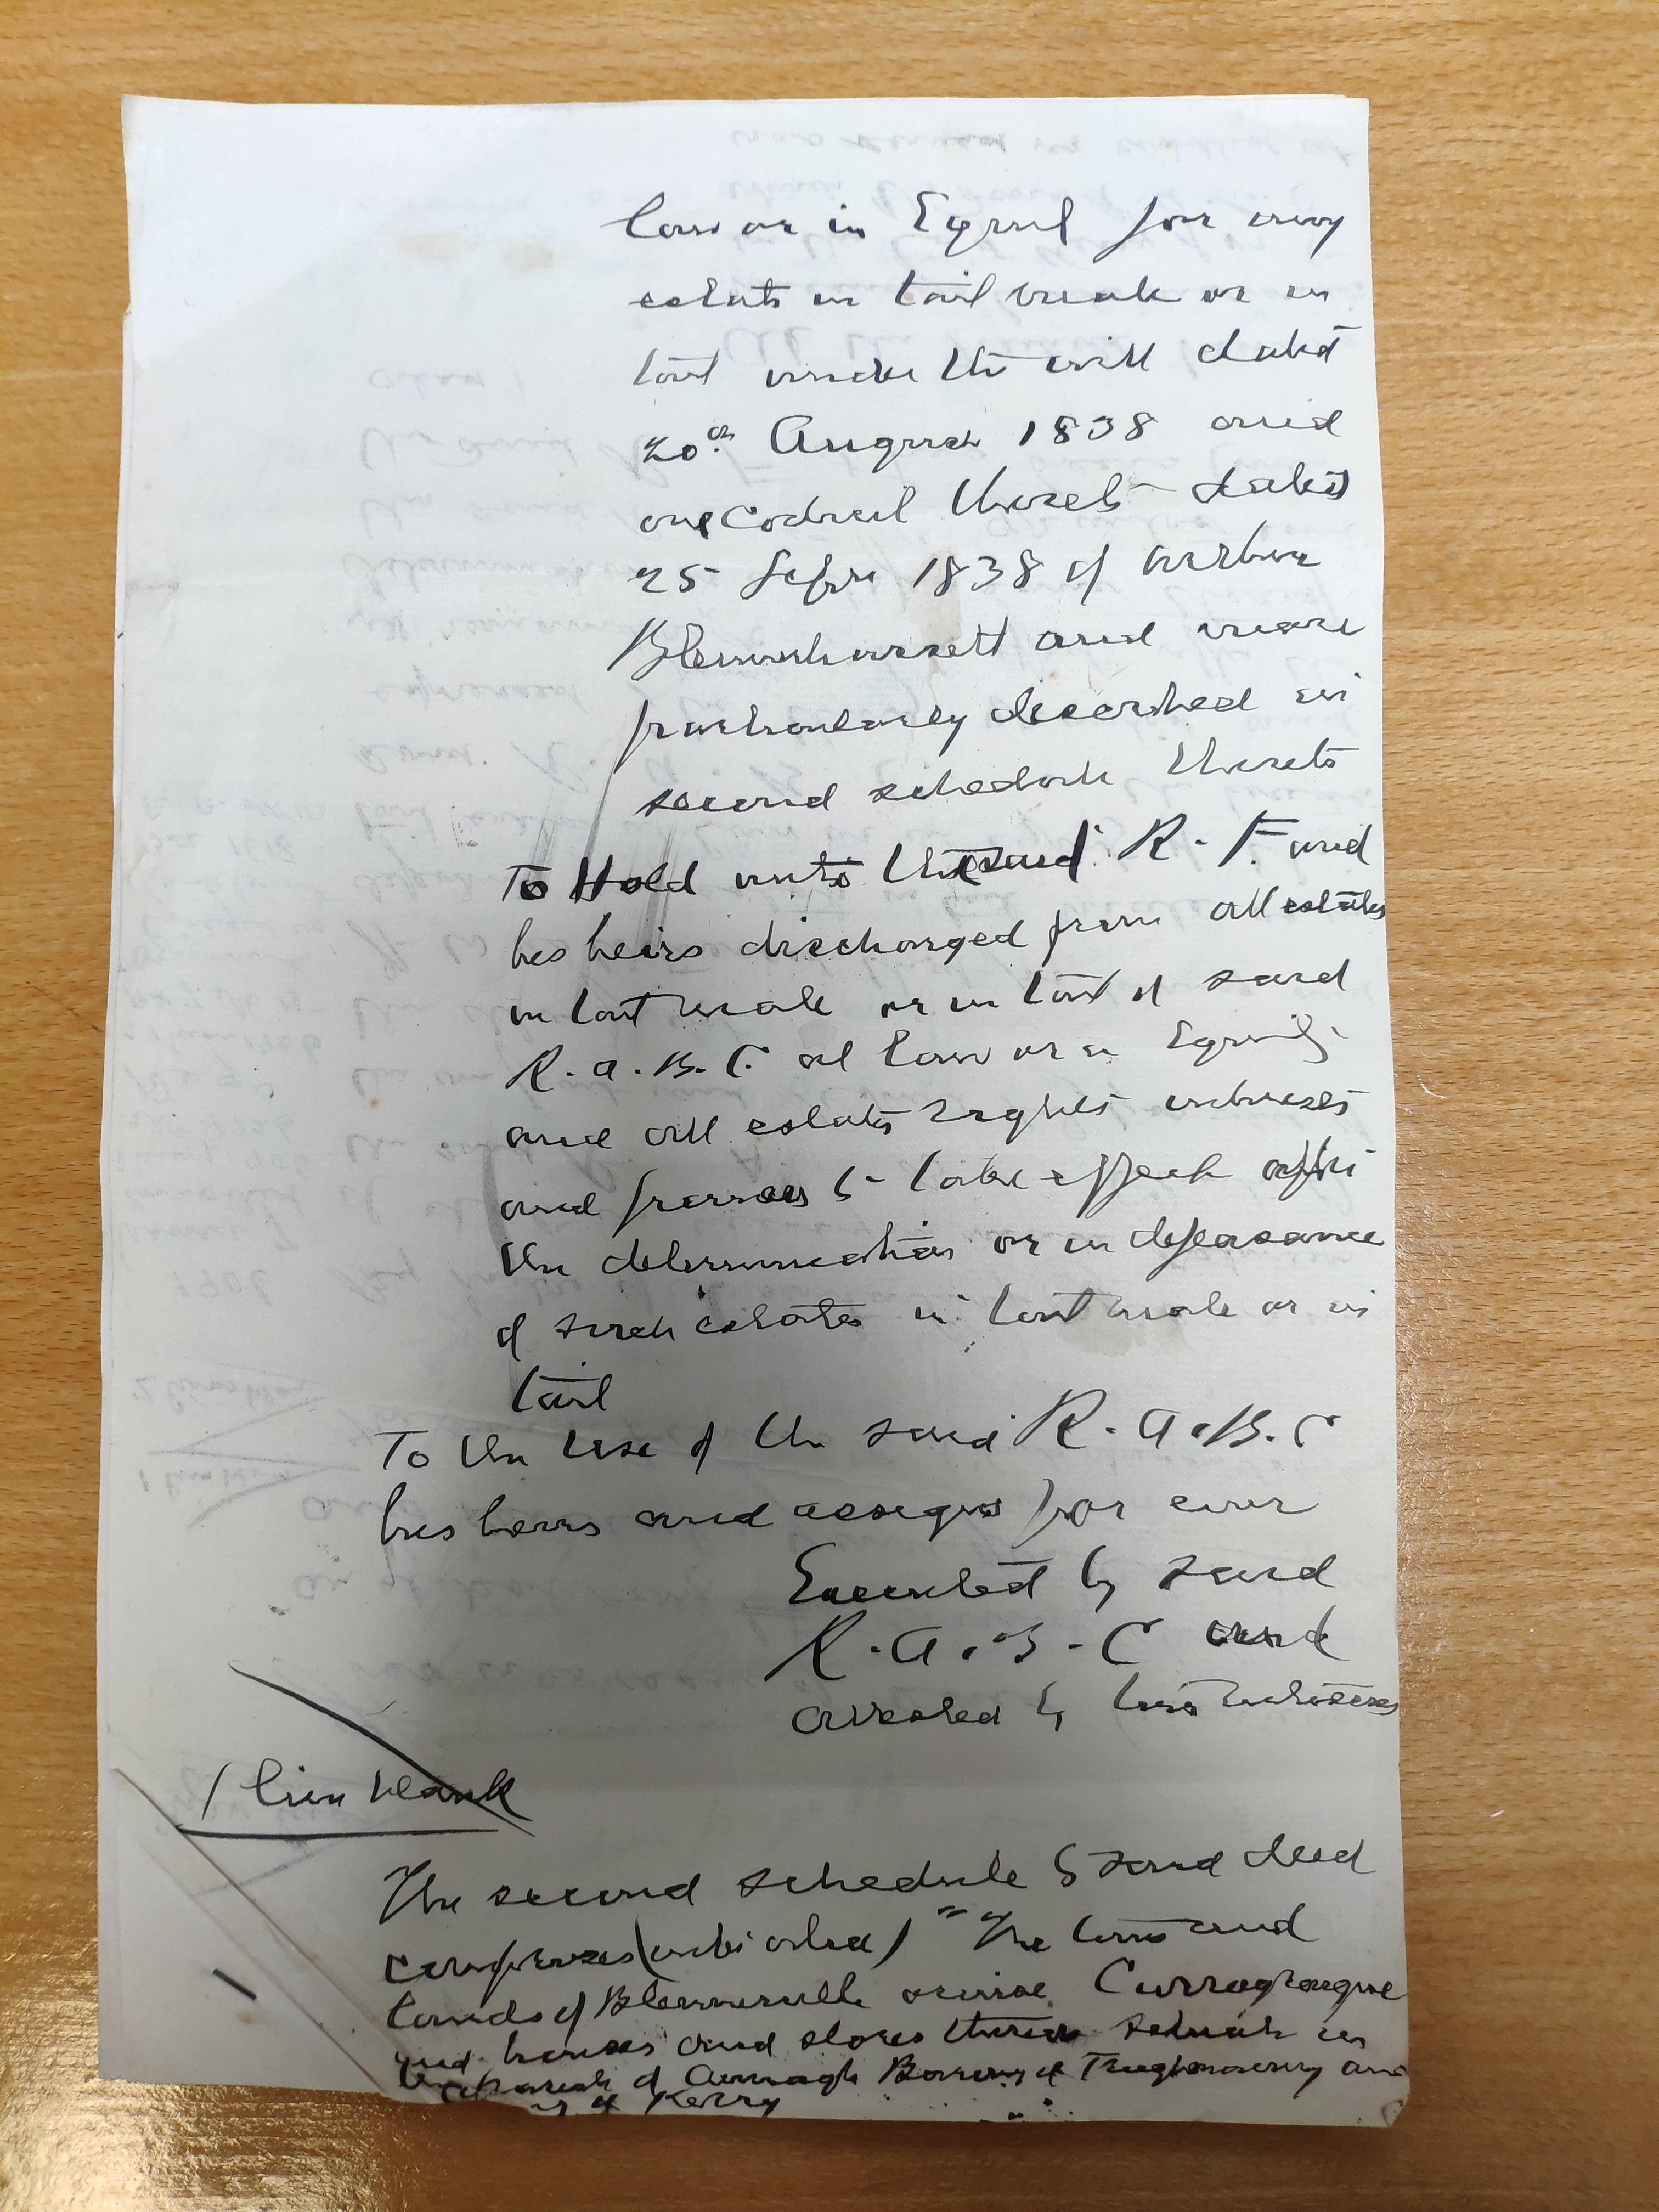 law or in Equity for any
estate in tail male or in
tail under the will dated
20th August 1838 and
one Codicil thereto dated
25 Septr 1838 of Arthur
Blennerhassett and more
particularly described in
second schedule thereto
To Hold unto the said R. F. and
his heirs discharged from all estates
in tail male or in tail of said
R. A. B. C. at law or in Equity
and all estates rights interests
and powers to take effect after
the determination or in defeasance
of such estates in tail male or in
tail
To the Use of the said R. A. B. C
his heirs and assigns for ever
Executed by said
R. A. B. C and
attested by two witnesses
1 line blank
The second schedule to said deed
comprises (inter alia) "The town and
lands of Blennerville otherwise Curragheague
and houses and stores thereon situate in
the Parish of Annagh Barony of Trughenacmy and
of Kerry